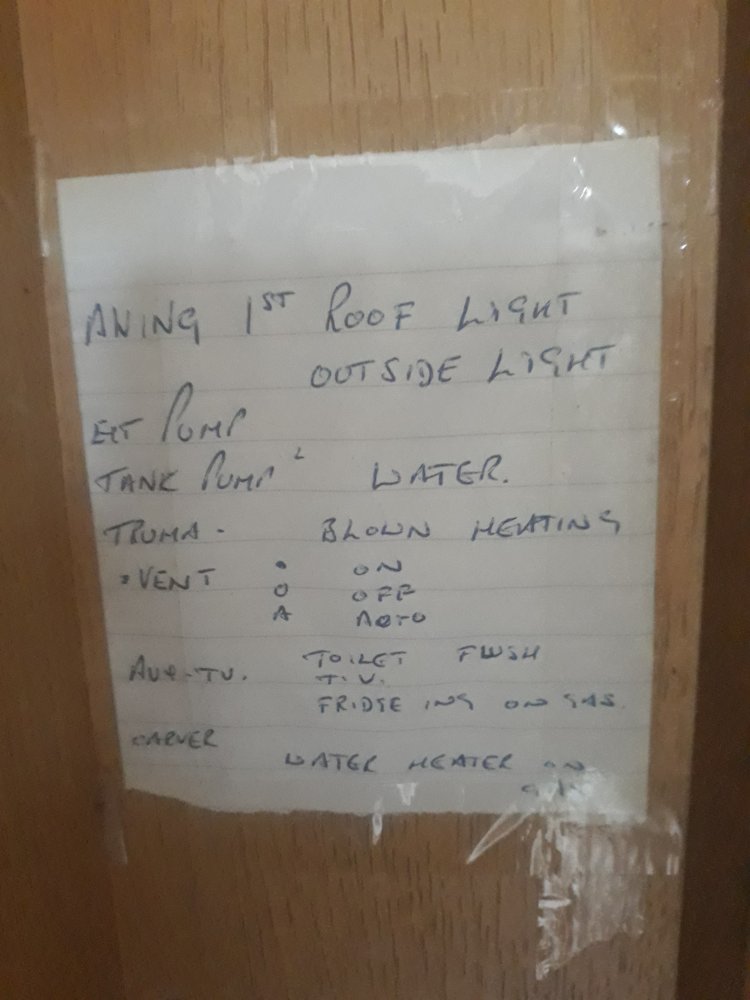 AWING 1ST ROOF LIGHT
OUTSIDE LIGHT
EXT PUMP
TANK PUMP WATER.
TRUMA - BLOWN HEATING
VENT • ON
O OFF
A AUTO
AUX-TV. TOILET FLUSH
T.V.
FRIDGE ING ON GAS.
CARVER
WATER HEATER ON